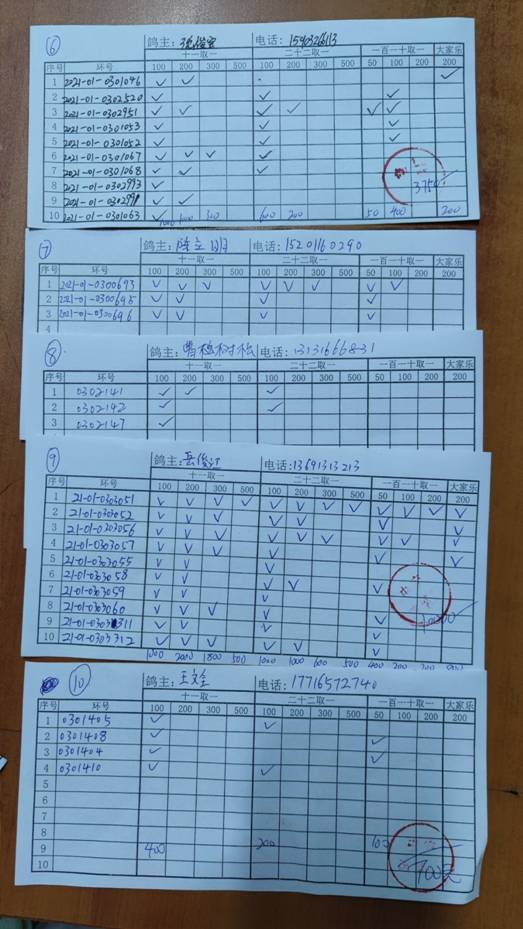 ⑥ 鸽主: 电话:
序号 环号 十一取一 二十二取一 一百一十取一 大家乐
100 200 300 500 100 200 300 500 50 100 200 200
1 2021-01-0301046 ✓ ✓ ✓
2 2021-01-0302520 ✓ ✓ ✓
3 2021-01-0302951 ✓ ✓ ✓ ✓ ✓ ✓
4 2021-01-0301053 ✓ ✓ ✓
5 2021-01-0301052 ✓ ✓ ✓
6 2021-01-0301067 ✓ ✓ ✓ ✓
7 2021-01-0301068 ✓ ✓ ✓
8 2021-01-0302993 ✓
9 2021-01-0302991 ✓ ✓
10 2021-01-0301063 ✓
300 600 200 50 400 200
3750
⑦ 鸽主: 陈立 电话: 15201160290
序号 环号 十一取一 二十二取一 一百一十取一 大家乐
100 200 300 500 100 200 300 500 50 100 200 200
1 2021-01-0300693 ✓ ✓ ✓ ✓ ✓ ✓ ✓ ✓
2 2021-01-0300695 ✓ ✓ ✓
3 2021-01-0300696 ✓ ✓ ✓
4
⑧ 鸽主: 电话: 13131666831
序号 环号 十一取一 二十二取一 一百一十取一 大家乐
100 200 300 500 100 200 300 500 50 100 200 200
1 0302141 ✓ ✓ ✓
2 0302142 ✓ ✓
3 0302147 ✓
⑨ 鸽主: 岳俊江 电话: 13691313213
序号 环号 十一取一 二十二取一 一百一十取一 大家乐
100 200 300 500 100 200 300 500 50 100 200 200
1 21-01-0303051 ✓ ✓ ✓ ✓ ✓ ✓ ✓ ✓ ✓ ✓ ✓ ✓
2 21-01-0303052 ✓ ✓ ✓ ✓ ✓ ✓
3 21-01-0303056 ✓ ✓ ✓ ✓ ✓ ✓ ✓
4 21-01-0303057 ✓ ✓ ✓ ✓ ✓ ✓ ✓ ✓ ✓
5 21-01-0303055 ✓ ✓ ✓ ✓ ✓
6 21-01-0303058 ✓ ✓ ✓ ✓
7 21-01-0303059 ✓ ✓ ✓ ✓
8 21-01-0303060 ✓ ✓ ✓ ✓
9 21-01-0303311 ✓ ✓ ✓ ✓
10 21-01-0303312 ✓ ✓ ✓ ✓ ✓ ✓
1000 2000 1800 500 1000 600 500 200
⑩ 鸽主: 王文全 电话: 17716572740
序号 环号 十一取一 二十二取一 一百一十取一 大家乐
100 200 300 500 100 200 300 500 50 100 200 200
1 0301405 ✓ ✓
2 0301408 ✓ ✓
3 0301404 ✓ ✓
4 0301410 ✓ ✓
5
6
7
8
9 400 200 100
10
700元